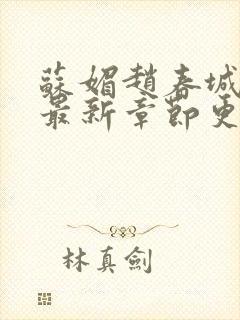 蘇媚趙春城
最新章節更
林真劍